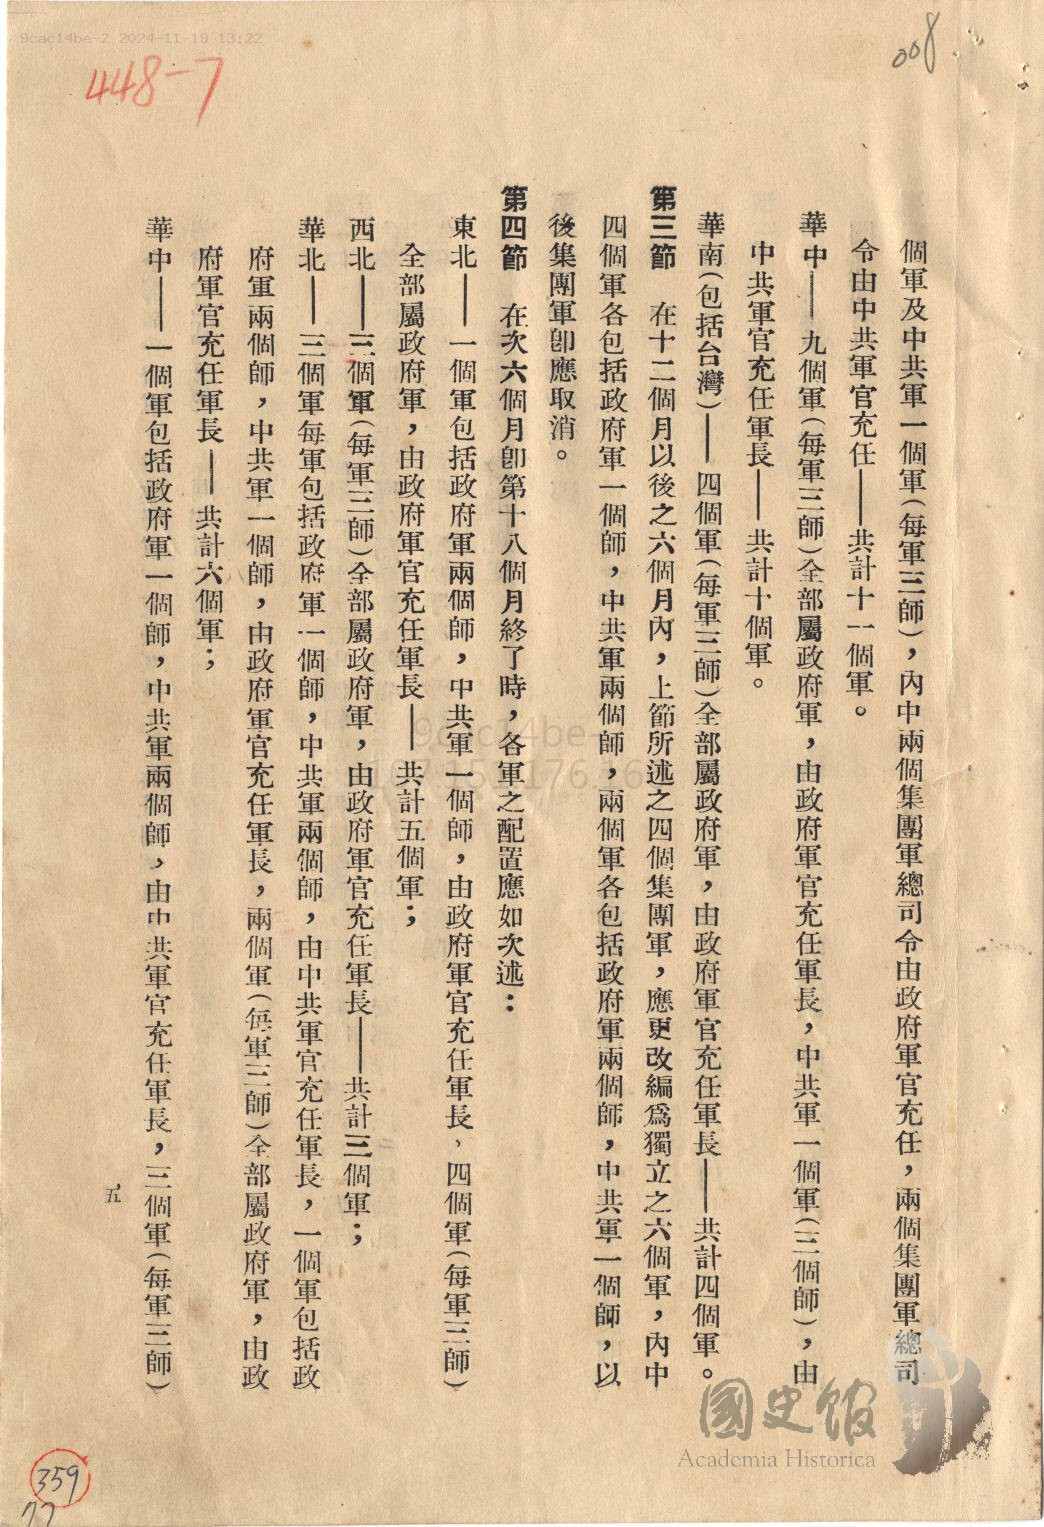 9cac14be-2 2024-11-19 13:22
448-7
008
個軍及中共軍一個軍(每軍三師)，內中兩個集團軍總司令由政府軍官充任，兩個集團軍總司
令由中共軍官充任——共計十一個軍。
華中——九個軍(每軍三師)全部屬政府軍，由政府軍官充任軍長，中共軍一個軍(三個師)，由
中共軍官充任軍長——共計十個軍。
華南(包括台灣)——四個軍(每軍三師)全部屬政府軍，由政府軍官充任軍長——共計四個軍。
第三節　在十二個月以後之六個月內，上節所述之四個集團軍，應更改編爲獨立之六個軍，內中
四個軍各包括政府軍一個師，中共軍兩個師，兩個軍各包括政府軍兩個師，中共軍一個師，以
後集團軍卽應取消。
第四節　在次六個月卽第十八個月終了時，各軍之配置應如次述：
東北——一個軍包括政府軍兩個師，中共軍一個師，由政府軍官充任軍長，四個軍(每軍三師)
全部屬政府軍，由政府軍官充任軍長——共計五個軍；
西北——三個軍(每軍三師)全部屬政府軍，由政府軍官充任軍長——共計三個軍；
華北——三個軍每軍包括政府軍一個師，中共軍兩個師，由中共軍官充任軍長，一個軍包括政
府軍兩個師，中共軍一個師，由政府軍官充任軍長，兩個軍(每軍三師)全部屬政府軍，由政
府軍官充任軍長——共計六個軍；
華中——一個軍包括政府軍一個師，中共軍兩個師，由中共軍官充任軍長，三個軍(每軍三師)
五
9cac14be-
國史館
Academia Historica
359
77